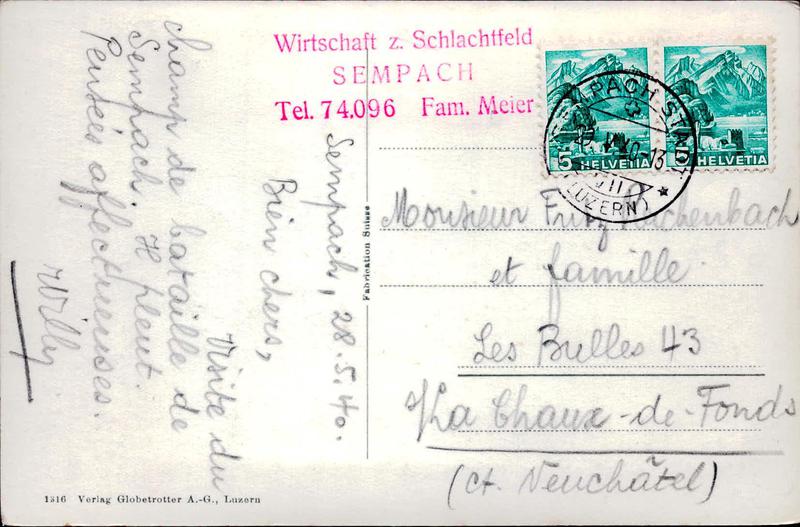 Wirtschaft z. Schlachtfeld
SEMPACH
Tel. 74.096 Fam. Meier
5 HELVETIA
5 HELVETIA
SEMPACH-STADT
(LUZERN)
Sempach, 28.5.40.
Bien chers,
Visite du
champ de bataille de
Sempach. Il pleut.
Pensées affectueuses.
Willy.
Fabrication Suisse
Monsieur Fritz
et famille.
Les Bulles 43
La Chaux-de-Fonds
(Ct. Neuchâtel)
1316 Verlag Globetrotter A.-G., Luzern